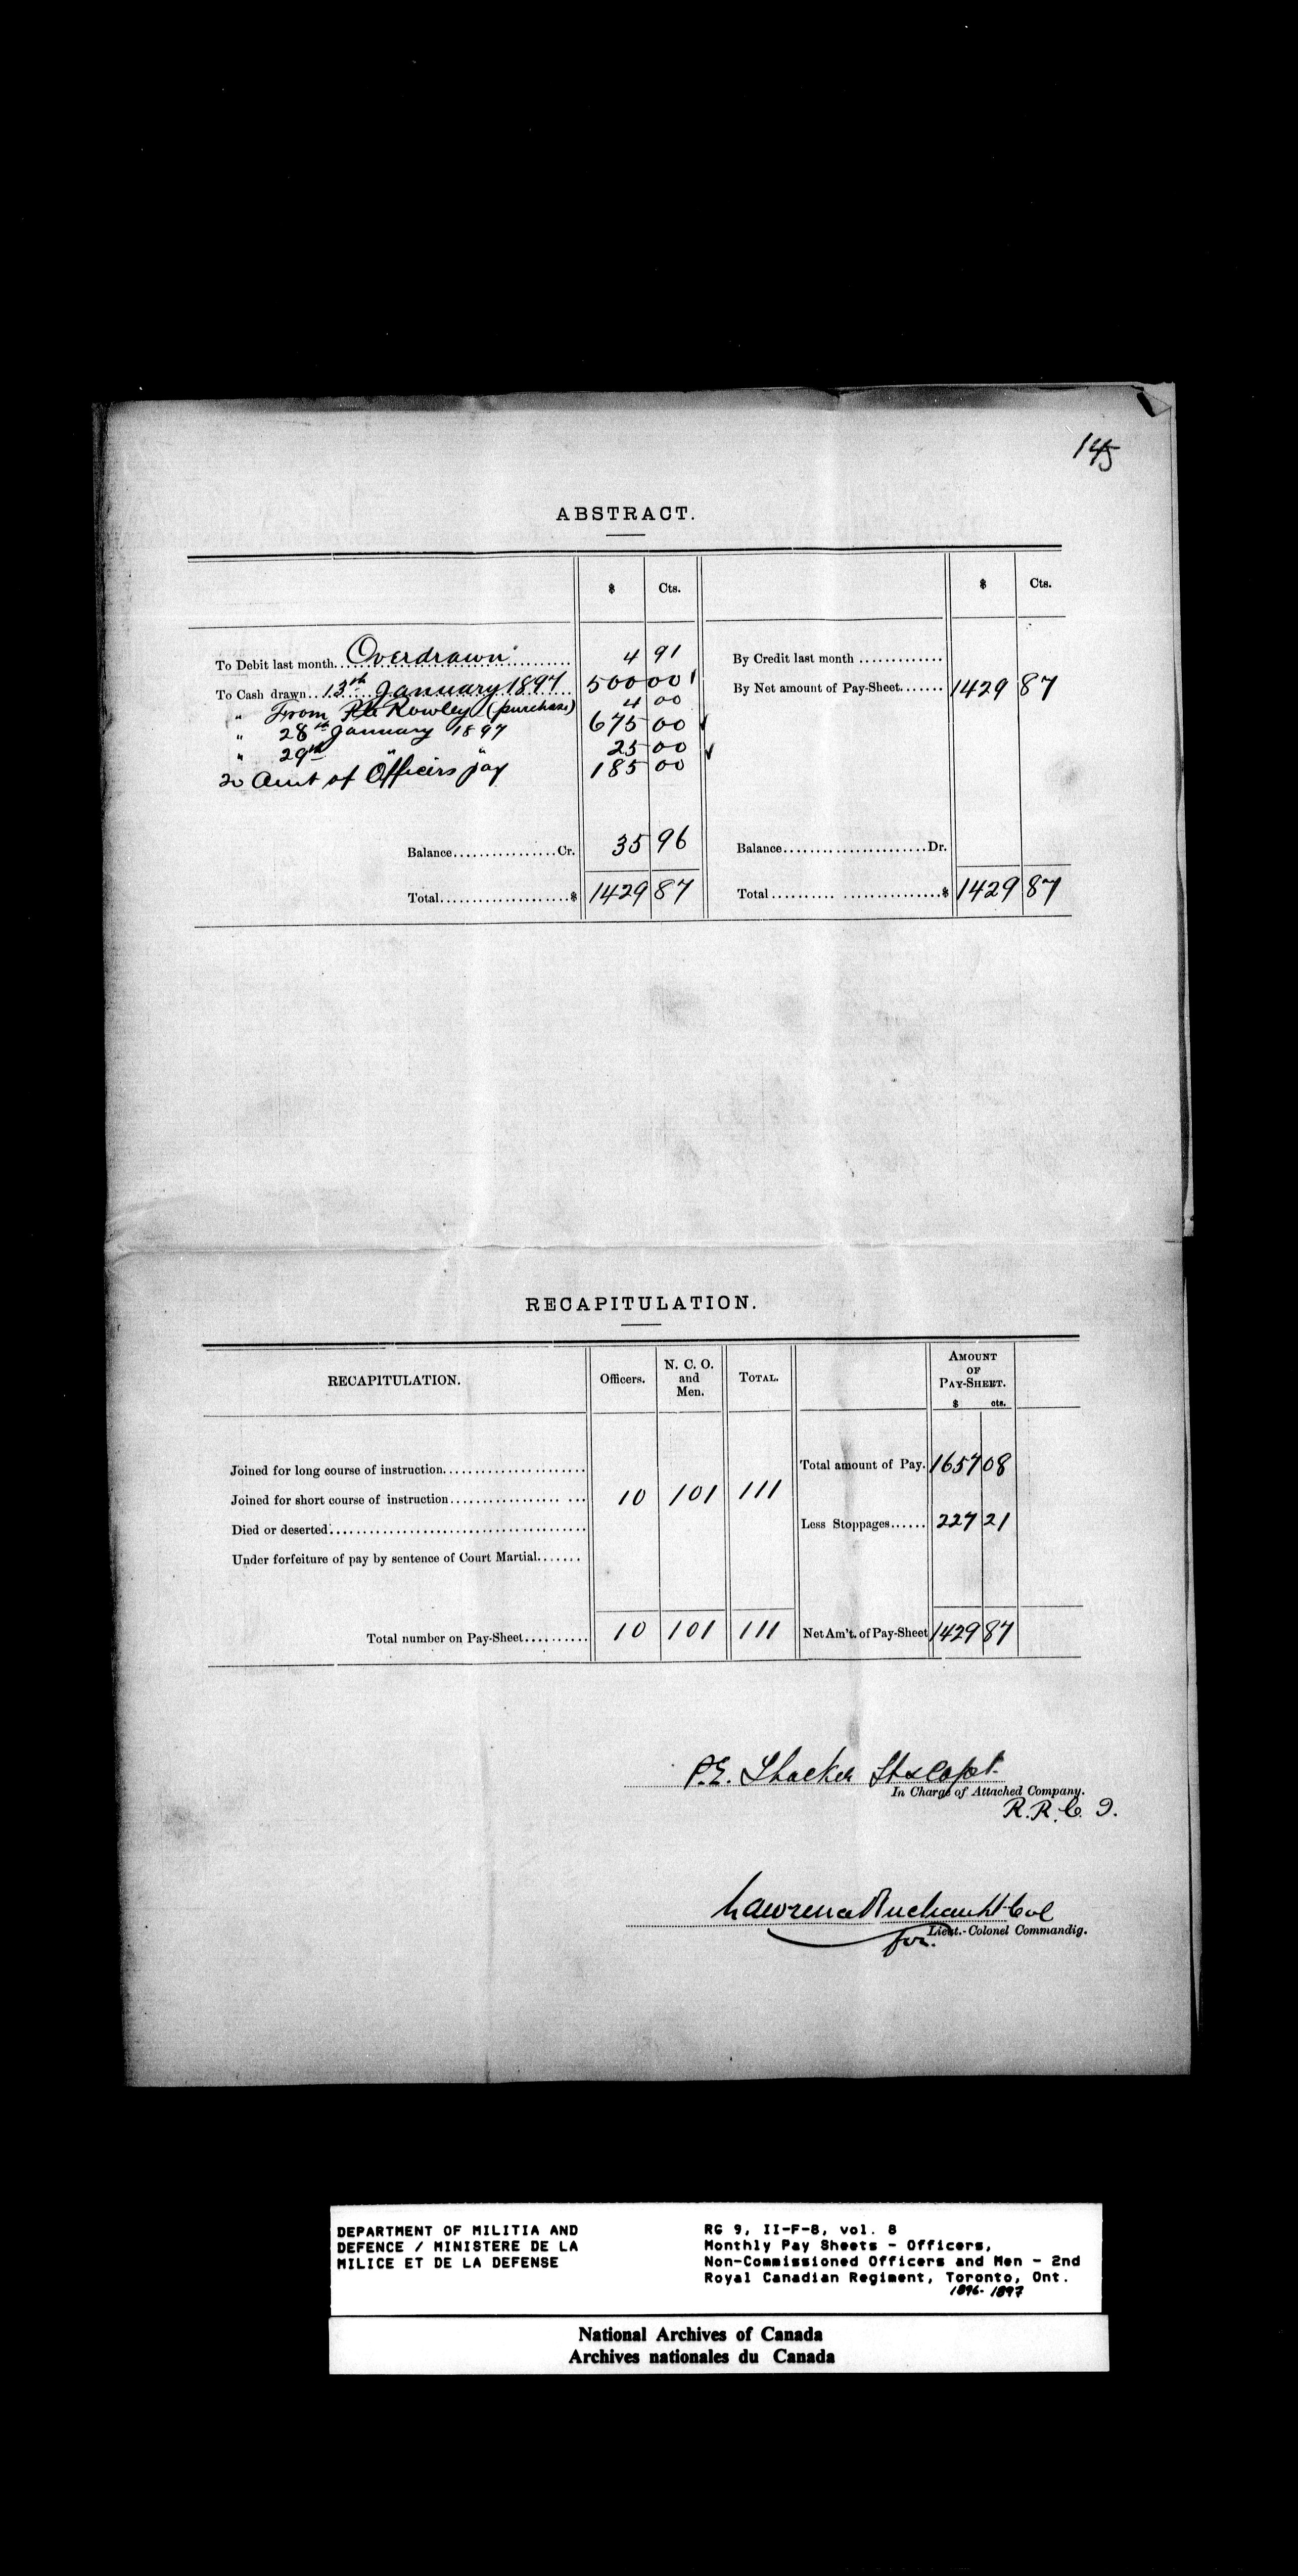 145
ABSTRACT.
$ Cts. $ Cts.
To Debit last month Overdrawn 4 91 By Credit last month
To Cash drawn 13th January 1897 500 00 By Net amount of Pay-Sheet 1429 87
" From Rowley (purchase) 4 00
" 28th January 1897 675 00
" 29th " " 25 00
To Amt of Officers pay 185 00
Balance Cr. 35 96 Balance Dr.
Total $ 1429 87 Total $ 1429 87
RECAPITULATION.
RECAPITULATION. Officers. N. C. O. and Men. TOTAL. AMOUNT OF PAY-SHEET.
$ cts.
Joined for long course of instruction Total amount of Pay. 1657 08
Joined for short course of instruction 10 101 111
Died or deserted Less Stoppages 227 21
Under forfeiture of pay by sentence of Court Martial
Total number on Pay-Sheet 10 101 111 Net Am't. of Pay-Sheet 1429 87
P.E. Thacker Lt & Capt
In Charge of Attached Company.
R.R.C.I.
Lawrence Buchan Lt Col
for. Lieut.-Colonel Commandig.
DEPARTMENT OF MILITIA AND
DEFENCE / MINISTERE DE LA
MILICE ET DE LA DEFENSE
RG 9, II-F-8, vol. 8
Monthly Pay Sheets - Officers,
Non-Commissioned Officers and Men - 2nd
Royal Canadian Regiment, Toronto, Ont.
1896-1897
National Archives of Canada
Archives nationales du Canada